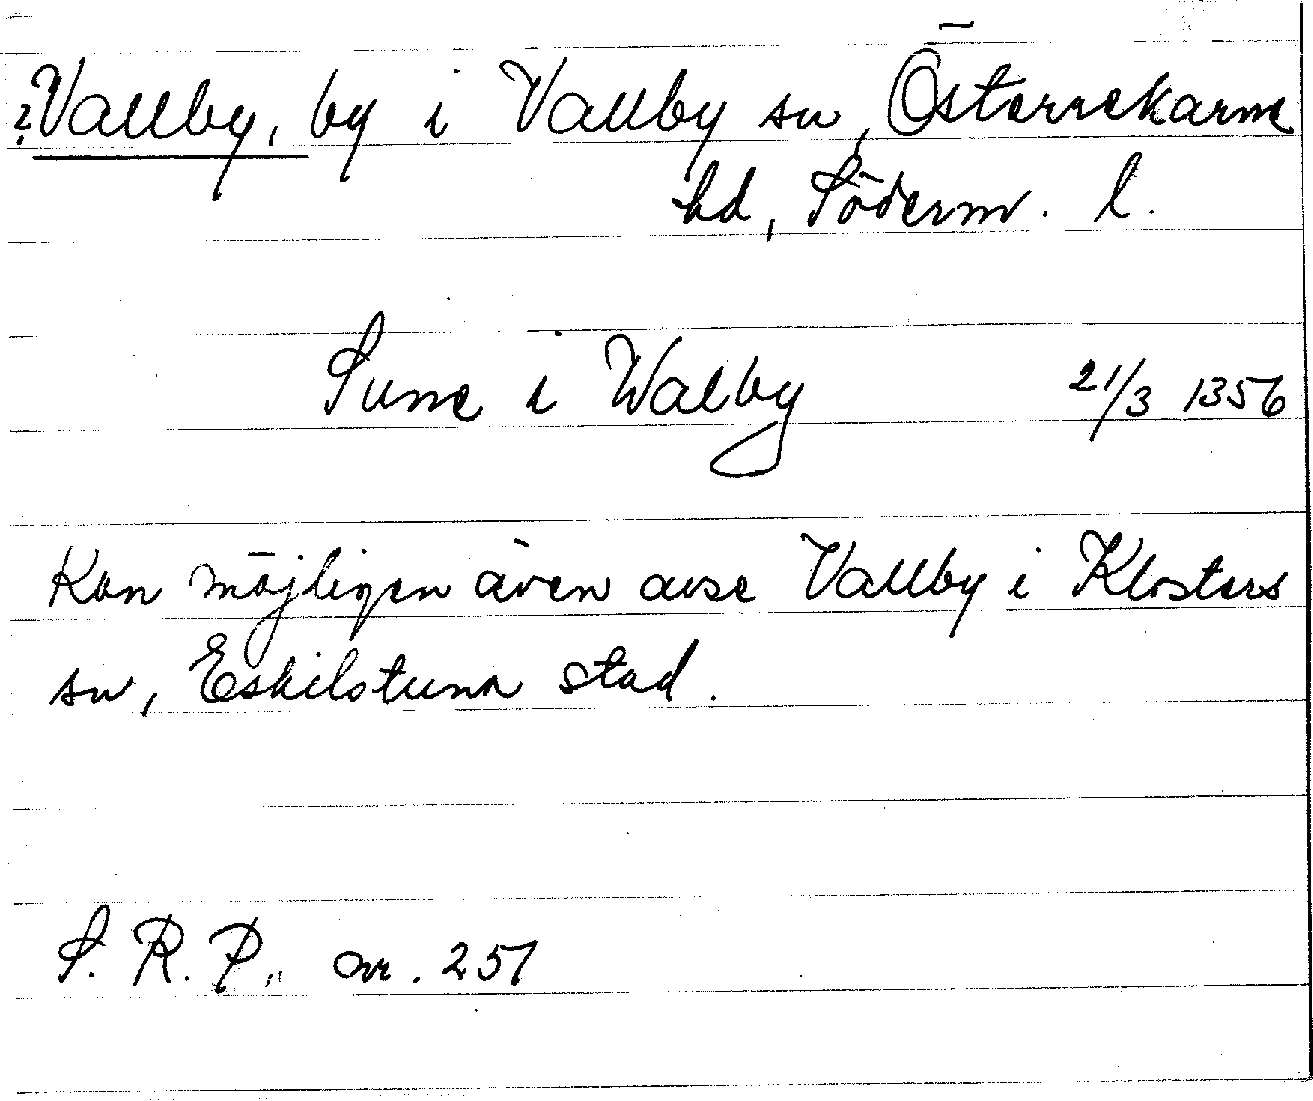 ?Vallby, by i Vallby sn, Österrekarne
hd, Söderm. l.
Sune i Walby 21/3 1356
Kan möjligen även avse Vallby i Klosters
sn, Eskilstuna stad.
S. R. P., nr. 257